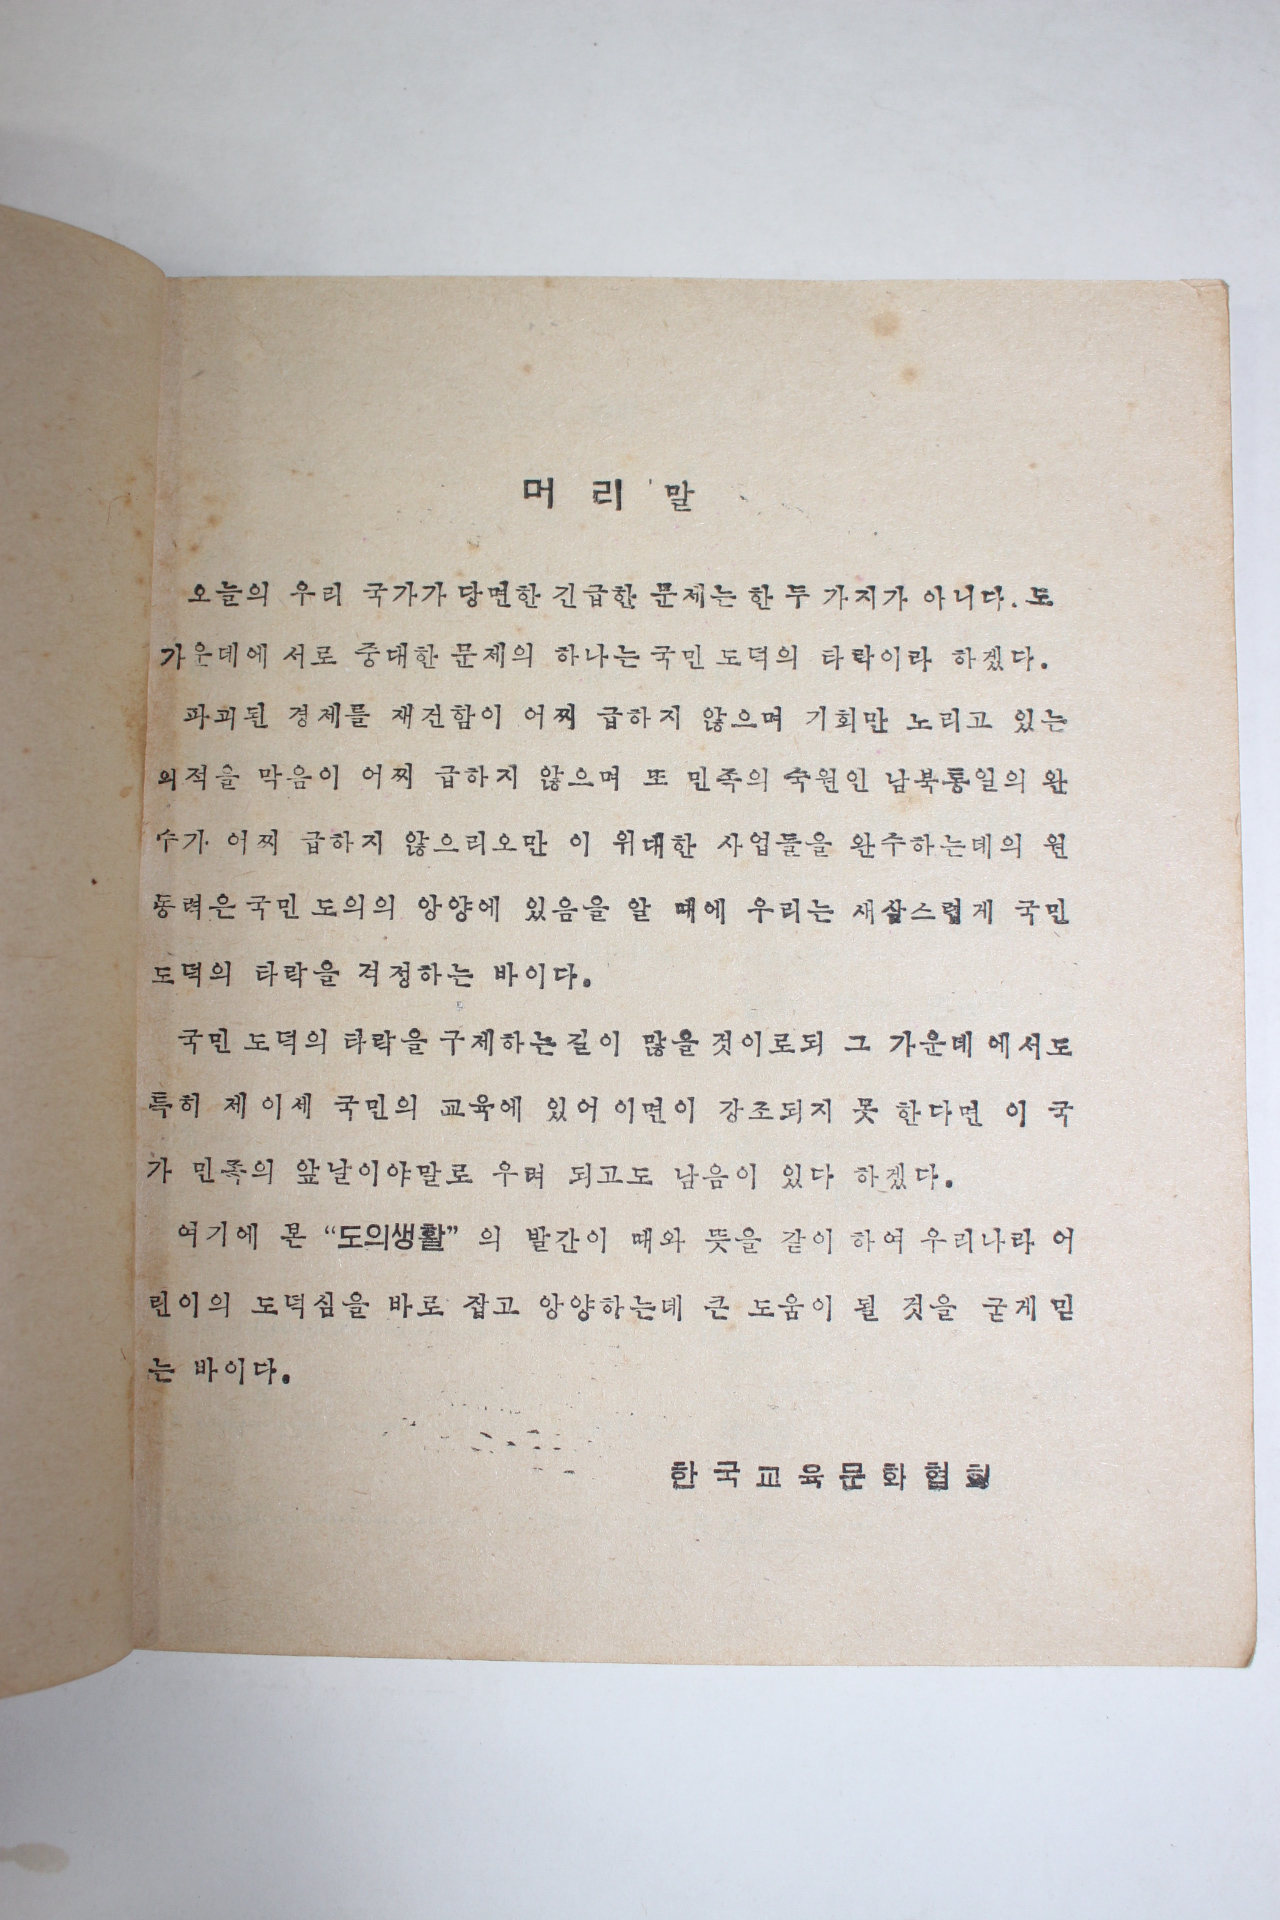 머리말
오늘의 우리 국가가 당면한 긴급한 문제는 한 두 가지가 아니다. 도
가운데에 서로 중대한 문제의 하나는 국민 도덕의 타락이라 하겠다.
파괴된 경제를 재건함이 어찌 급하지 않으며 기회만 노리고 있는
외적을 막음이 어찌 급하지 않으며 또 민족의 숙원인 남북통일의 완
수가 어찌 급하지 않으리오만 이 위대한 사업들을 완수하는데의 원
동력은 국민 도의의 앙양에 있음을 알 때에 우리는 새삼스럽게 국민
도덕의 타락을 걱정하는 바이다.
국민 도덕의 타락을 구제하는 길이 많을 것이로되 그 가운데 에서도
특히 제 이세 국민의 교육에 있어 이면이 강조되지 못 한다면 이 국
가 민족의 앞날이야말로 우려 되고도 남음이 있다 하겠다.
여기에 본 “도의생활” 의 발간이 때와 뜻을 같이 하여 우리나라 어
린이의 도덕심을 바로 잡고 앙양하는데 큰 도움이 될 것을 굳게 믿
는 바이다.
한국교육문화협회